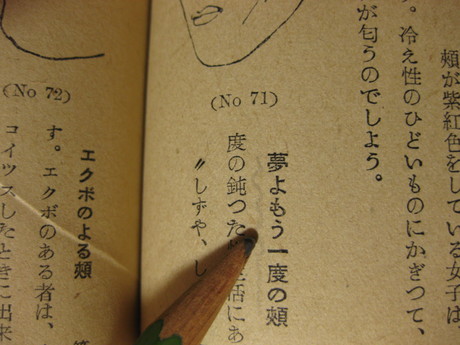 頬が紫紅色をしている女子は、
す。冷え性のひどいものにかぎつて、
が匂うのでしよう。
(No 71)
夢よもう一度の頬
度の鈍つた 生活にあ
〃しずや、し
(No 72)
エクボのよる頬
す。エクボのある者は、
コイツスしたときに出来